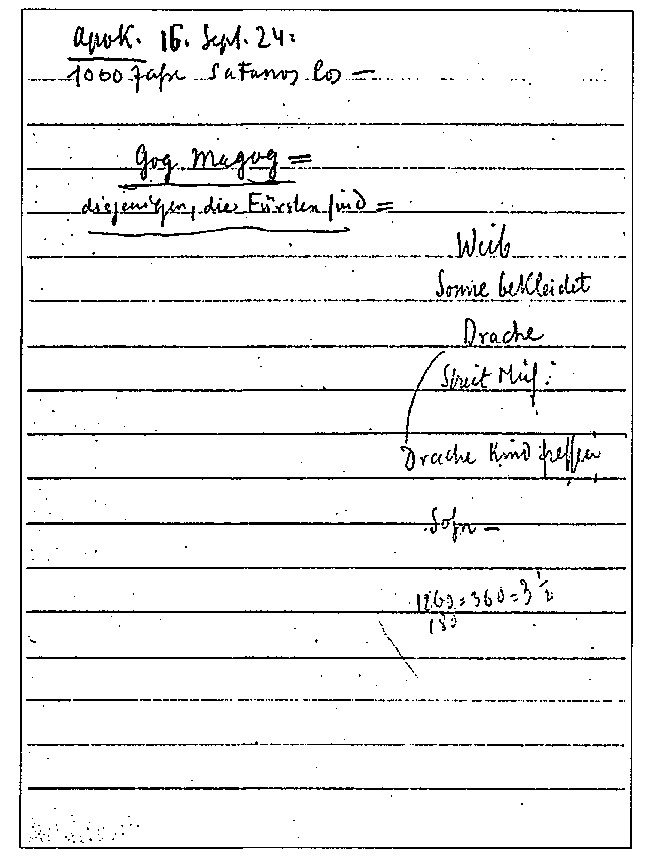 Apok. 16. Sept. 24:
1000 Jahre Satanas los —
Gog Magog =
diejenigen, die Fürsten sind =
Weib
Sonne bekleidet
Drache
Streit Mich:
Drache Kind fressen
Sohn —
1260 : 360 = 3 1/2
180